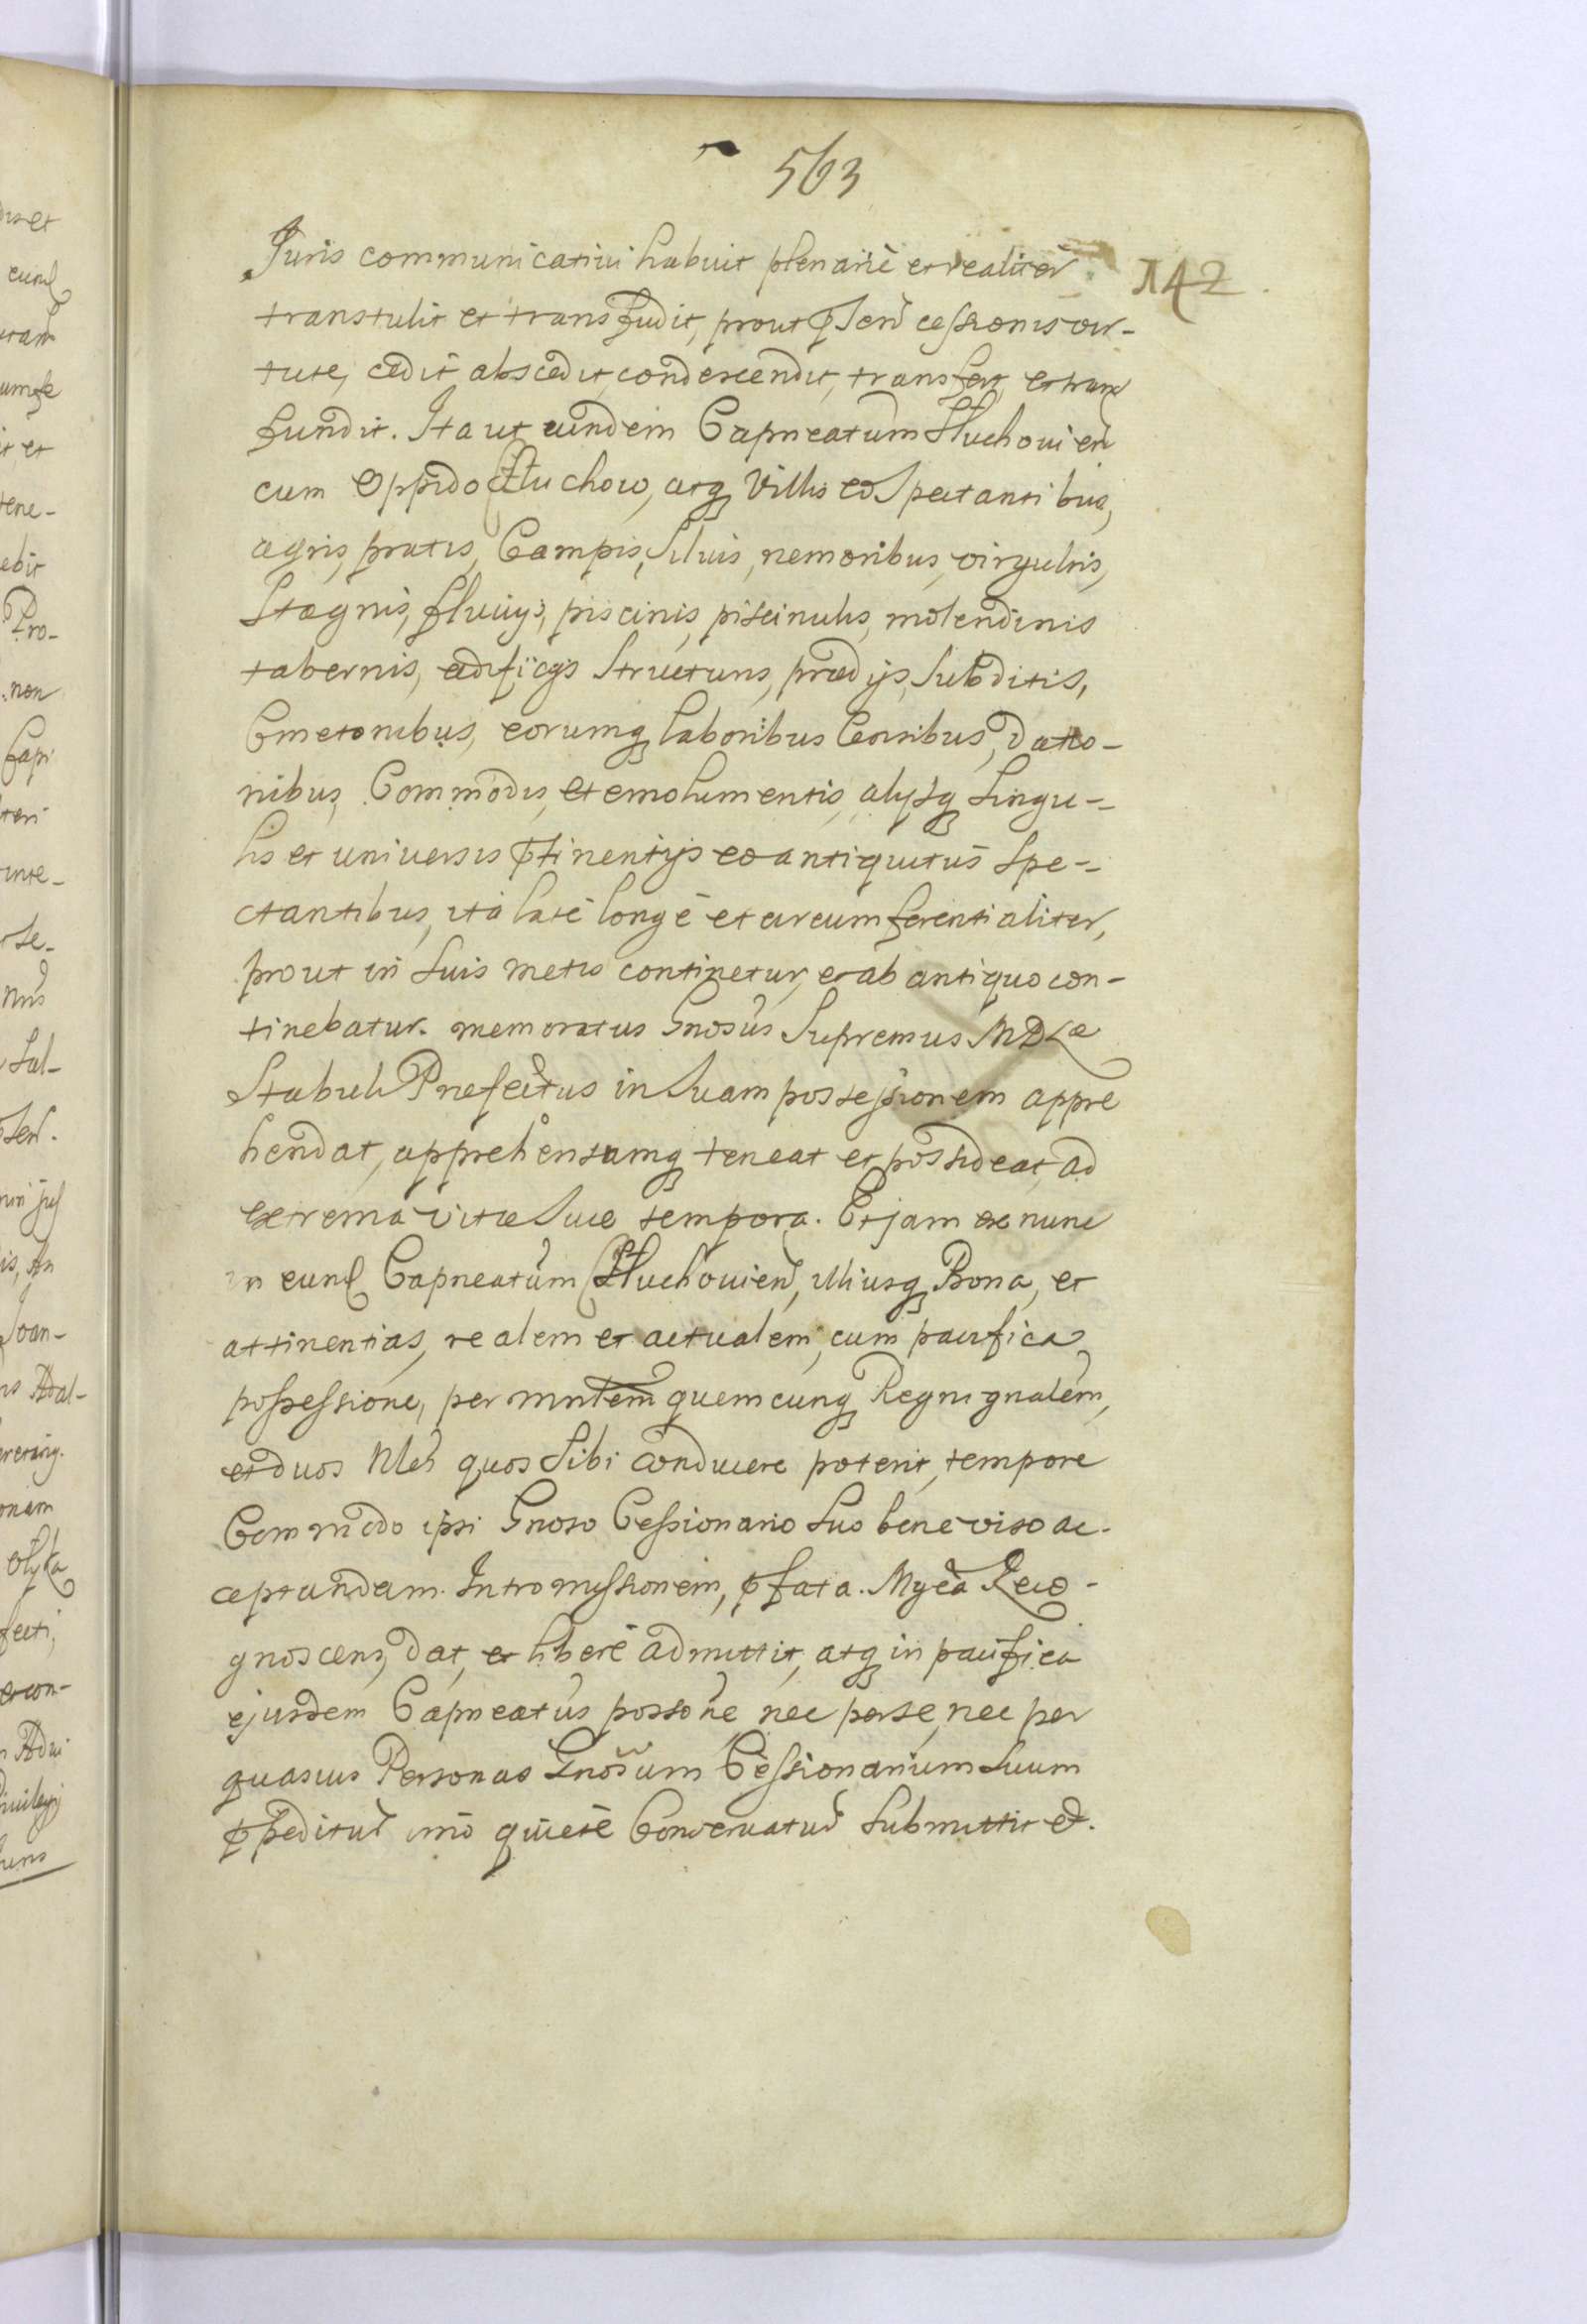 563
142
Juris communicatiui habuit plenariè et realiter
transtulit et transfudit, prout pñsen cessionis vir-
tute, cedit abscedit, condescendit, transfert, et trans
fundit. Ita ut eundem Capneatum Tłuchouien
cum Oppido Tłuchow, atq Villis eo Spectantibus,
agris, pratis, Campis, Siluis, nemoribus, virgultis,
Stagnis, fluuijs, piscinis, piscinulis, molendinis
tabernis, ædificijs Structuris, prædijs, Subditis,
Cmetonibus, eorumq laboribus Censibus, datio-
nibus, Commodis, et emolumentis, alijsq singu-
lis et uniuersis ptinentijs eo antiquitus spe-
ctantibus, ità latè longè et circumferentialiter,
prout in suis metis continetur, et ab antiquo con-
tinebatur. memoratus Gnosus Supremus MDLæ
Stabuli Præfectus in Suam possessionem appre
hendat, apprehensamq teneat et possideat, ad
extrema vitæ Suæ tempora. Et jam ex nunc
in eund Capneatum Tłuchouien, illiusq Bona, et
attinentias, realem et actualem, cum pacifica
possessione, per mntem quemcunq Regni gnalem,
et duos Nles quos Sibi conducere poterit, tempore
Commodo ipsi Gnoso Cessionario Suo bene viso ac-
ceptandam Intromissionem, pfata. Mgca Reco-
gnoscens, dat, et liberè admittit, atq in pacifica
ejusdem Capneatus possone nec per se, nec per
quasuis Personas Gnosum Cessionarium Suum
pñpeditur imò quietè Conseruatur Submittit et.